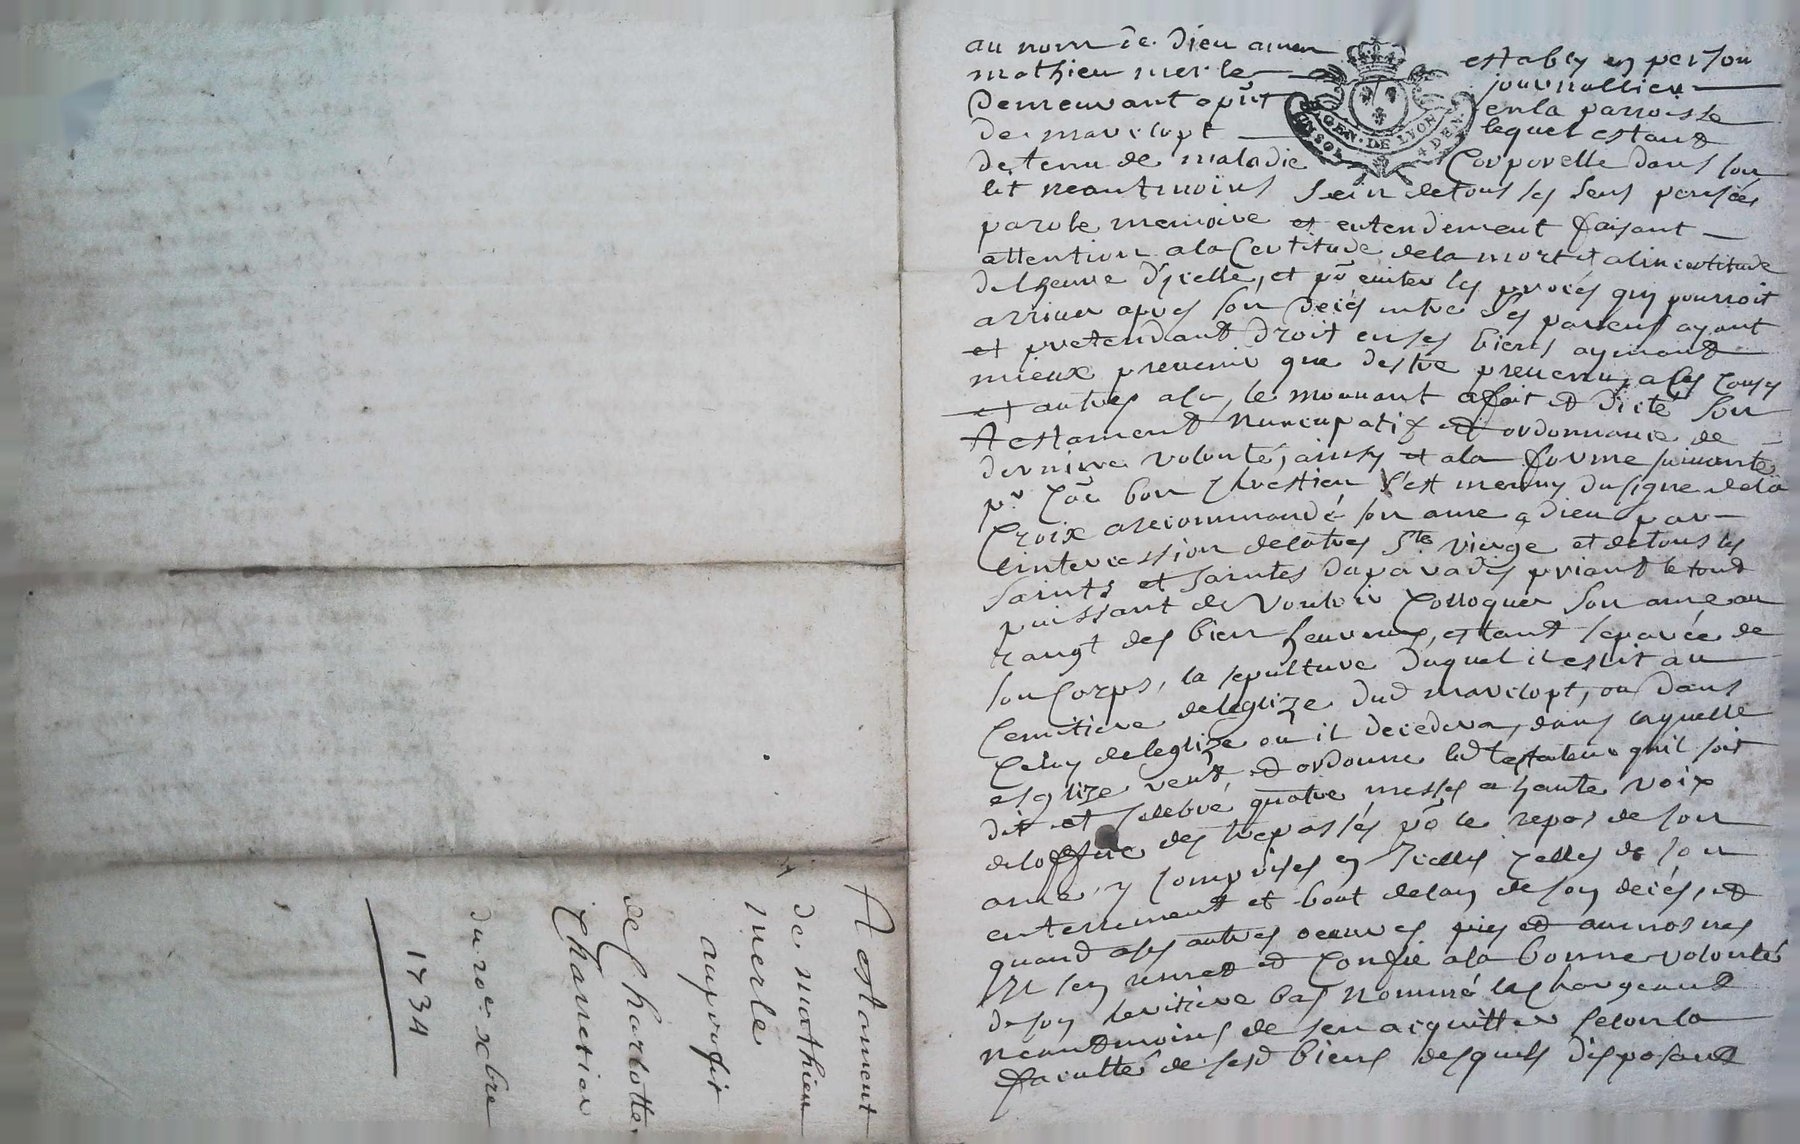 Testament
de mathieu
merle
au profit
de Charlotte
Chametier
du 20e xbre
1734
au nom de Dieu amen
establÿ en person
mathieu merle
journallier
Demeurant apñt
en la parroisse
de marclopt
lequel estant
GEN. DE LYON
UN SOL
4 DEN.
detenu de maladie Corporelle dans son
lit neantmoins sein de tous ses sens pensées
parole memoire et entendement faisant
attention a la Certitude de la mort et a lincertitude
de lheure d'jcelle, et põ euiter les procés quy pourroit
arriuer apres son decés entre ses parens ayant
et pretendant droit en ses biens aymant
mieux preuenir que destre preuenu, a ces causes
et autres a ce le mouuant a fait et dicté son
testament nuncupatif et ordonnance de
derniere volonté, ainsy et a la forme suiuante
pr. Cõe bon Chrestien s'est meuny du signe de la
Croix a recommandé son ame a Dieu par
lintercession de la tres Ste vierge et de tous les
saints et saintes du paradis priant le tout
puissant de vouloir Colloquer son ame au
rangt des bien heureux, estant separée de
son Corps, la sepulture duquel il eslit au
Cemitiere de leglize dud marclopt, ou dans
Celuy de leglize ou il decedera, dans laquelle
esglize veut et ordonne led testateur quil soit
dit et Celebré quatre messes a haute voix
de loffice des trepassés põ le repos de son
ame, y comprises en jcelles celles de son
enterrement et bout de lan de son decés, et
quand aux autres oeuures pies et aumosnes
Il sen remet et Confie a la bonne volonté
de son heritiere bas nommé la Chargeant
neantmoins de sen acquitter selon la
faculté de sesd biens desquels disposant